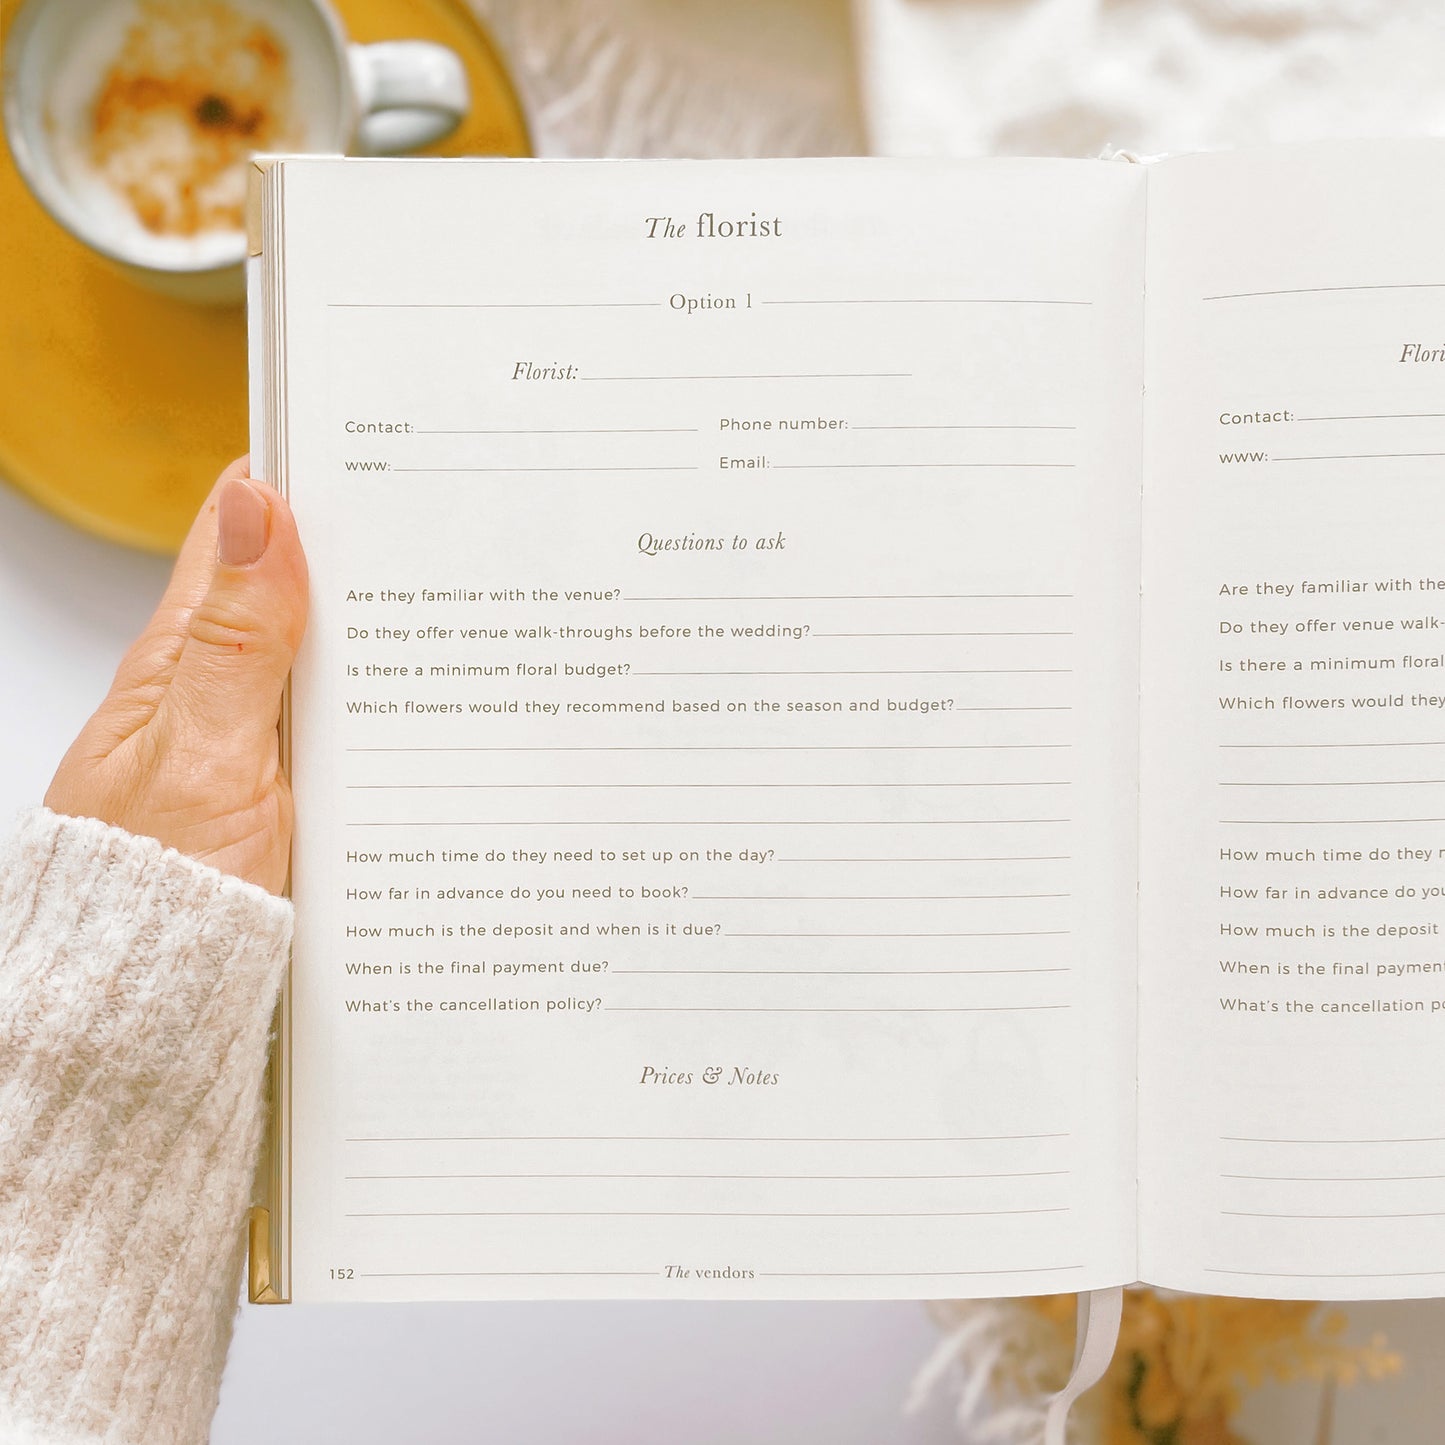 The florist
Option 1
Florist:
Contact: Phone number:
www: Email:
Questions to ask
Are they familiar with the venue?
Do they offer venue walk-throughs before the wedding?
Is there a minimum floral budget?
Which flowers would they recommend based on the season and budget?
How much time do they need to set up on the day?
How far in advance do you need to book?
How much is the deposit and when is it due?
When is the final payment due?
What's the cancellation policy?
Prices & Notes
152 The vendors
Contact:
www:
Are they familiar with the
Do they offer venue walk-
Is there a minimum floral
Which flowers would they
How much time do they
How far in advance do you
How much is the deposit
When is the final payment
What's the cancellation